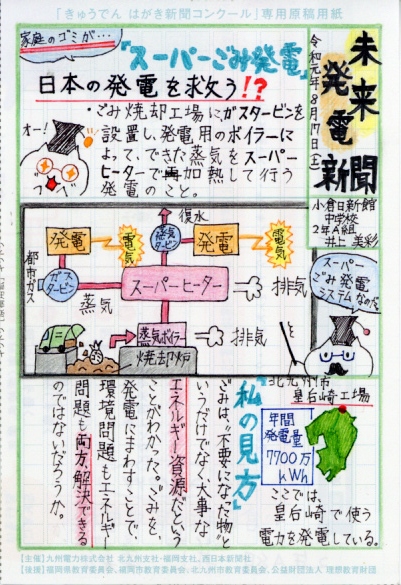 「きゅうでん はがき新聞コンクール」専用原稿用紙
未来
発電
新聞
令和元年8月17日(土)
小倉日新館
中学校
2年A組
井上 美彩
家庭のゴミが…
『スーパーごみ発電』
日本の発電を救う!?
・ごみ焼却工場にガスタービンを
設置し、発電用のボイラーに
よって、できた蒸気をスーパー
ヒーターで再加熱して行う
発電のこと。
オー!
復水
発電
電気
蒸気タービン
発電
電気
都市ガス
ガスタービン
スーパーヒーター
排気
蒸気
蒸気ボイラー
排気
焼却炉
スーパー
ごみ発電
システムなのだ
『私の見方』
ごみは"不要になった物"と
いうだけでなく、大事な
エネルギー資源だという
ことがわかった。ごみを
発電にまわすことで、
環境問題もエネルギー
問題も両方、解決できる
のではないだろうか。
北九州市
皇后崎工場
年間
発電量
7700万
kWh
ここでは、
皇后崎で使う
電力を発電している。
【主催】九州電力株式会社 北九州支社・福岡支社、西日本新聞社
【後援】福岡県教育委員会、福岡市教育委員会、北九州市教育委員会、公益財団法人 理想教育財団